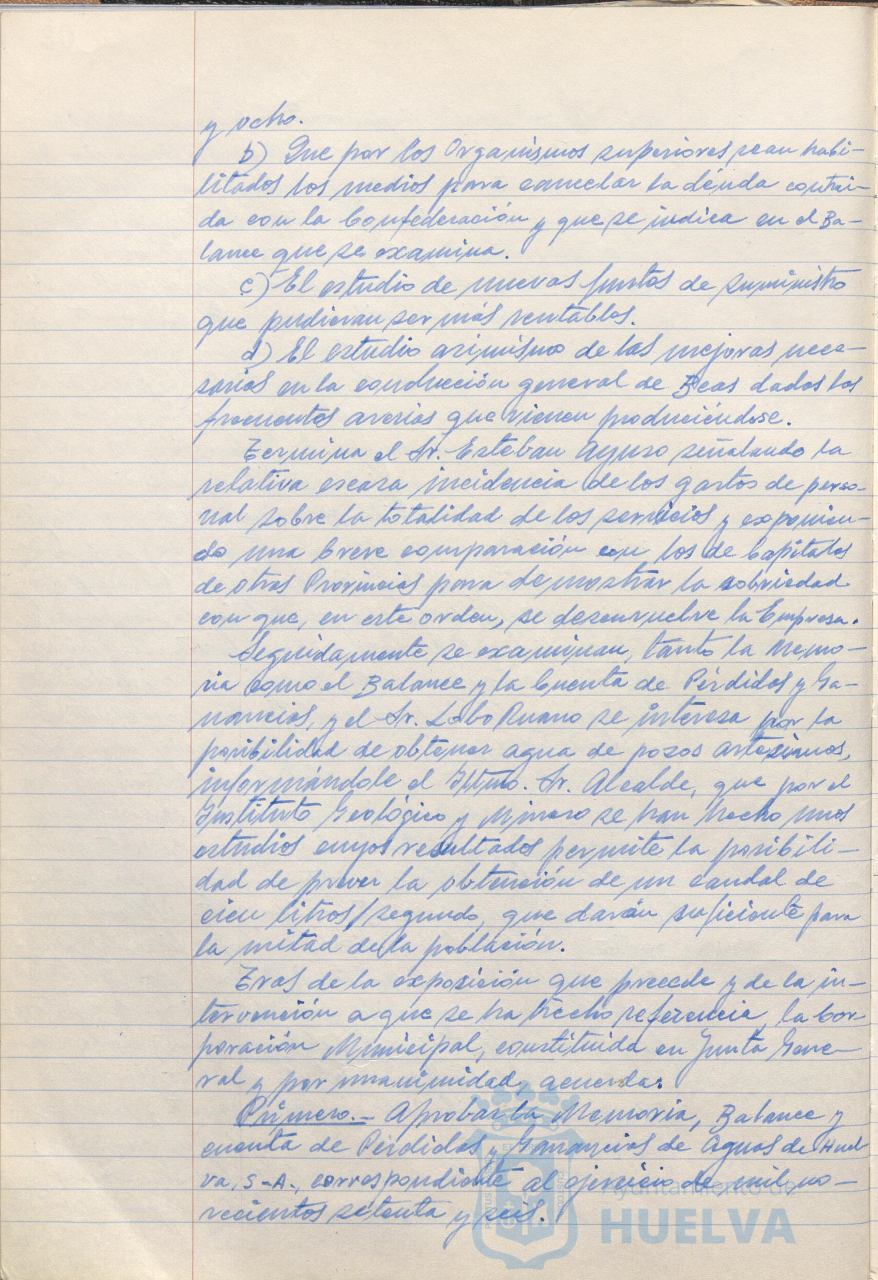 y ocho.
b) Que por los Organismos superiores sean habi-
litados los medios para cancelar la deuda contrai-
da con la Confederación y que se indica en el Ba-
lance que se examina.
c) El estudio de nuevos puntos de suministro
que pudieran ser más rentables.
d) El estudio asimismo de las mejoras nece-
sarias en la conducción general de Beas dados los
frecuentes averias que vienen produciéndose.
Termina el Sr. Esteban Ayuso señalando la
relativa escasa incidencia de los gastos de perso-
nal sobre la totalidad de los servicios y exponien-
do una breve comparación con los de Capitales
de otras Provincias para demostrar la sobriedad
con que, en este orden, se desenvuelve la Empresa.
Seguidamente se examinan, tanto la Memo-
ria como el Balance y la Cuenta de Pérdidas y Ga-
nancias, y el Sr. Lobo Ruano se interesa por la
posibilidad de obtener agua de pozos artesianos,
informándole el Iltmo. Sr. Alcalde, que por el
Instituto Geológico y Minero se han hecho unos
estudios cuyos resultados permite la posibili-
dad de prever la obtención de un caudal de
cien litros/segundo, que darán suficiente para
la mitad de la población.
Tras de la exposición que precede y de la in-
tervención a que se ha hecho referencia, la Cor
poración Municipal, constituida en Junta Gene-
ral y por unanimidad, acuerda:
Primero.- Aprobar la Memoria, Balance y
cuenta de Pérdidas y Ganancias de Aguas de Huel
va, S-A., correspondiente al ejercicio de mil no-
vecientos setenta y seis.
Ayuntamiento de
HUELVA